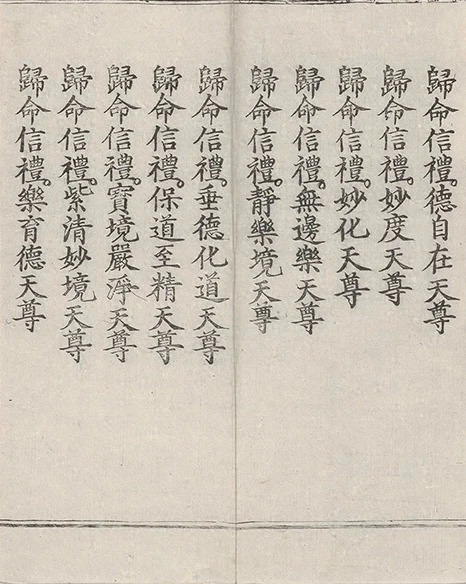 歸命信禮。德自在天尊
歸命信禮。妙度天尊
歸命信禮。妙化天尊
歸命信禮。無邊樂天尊
歸命信禮。靜樂境天尊
歸命信禮。垂德化道天尊
歸命信禮。保道至精天尊
歸命信禮。寶境嚴淨天尊
歸命信禮。紫清妙境天尊
歸命信禮。樂育德天尊